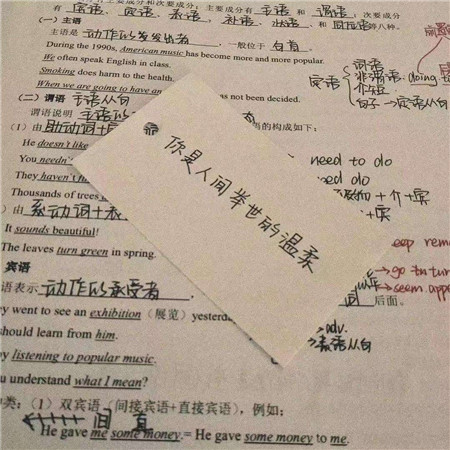 有主要成分和次要成分；主要成分有 主语 和 谓语；次要成分
有 宾语 、 定语 、 表语 、 补语 、 状语 和 同位语等八种。
(一) 主语
主语是 动作的发出者 ，一般位于 句首 。
During the 1990s, American music has become more and more popular.
We often speak English in class.
Smoking does harm to the health.
When we are going to have an
as not been decided.
主语从句
(二) 谓语
谓语说明 主语的
的构成如下：
(1) 由 助动词+
He doesn't like
You needn't
They haven't
Thousands of trees
由 系动词+表
It sounds beautiful!
The leaves turn green in spring.
need to do
need do
+介+宾
+宾
定语
词语
非谓语. doing to
介短
句子→定语从句
你是人间举世的温柔
→go tu
→seem. appe
后面。
宾语
语表示 动作的承受者 ，
y went to see an exhibition (展览) yesterd
should learn from him.
→adv.
→表语从句
y listening to popular music.
u understand what I mean?
种类：(1) 双宾语 (间接宾语+直接宾语)，例如：
间 直
He gave me some money.= He gave some money to me.